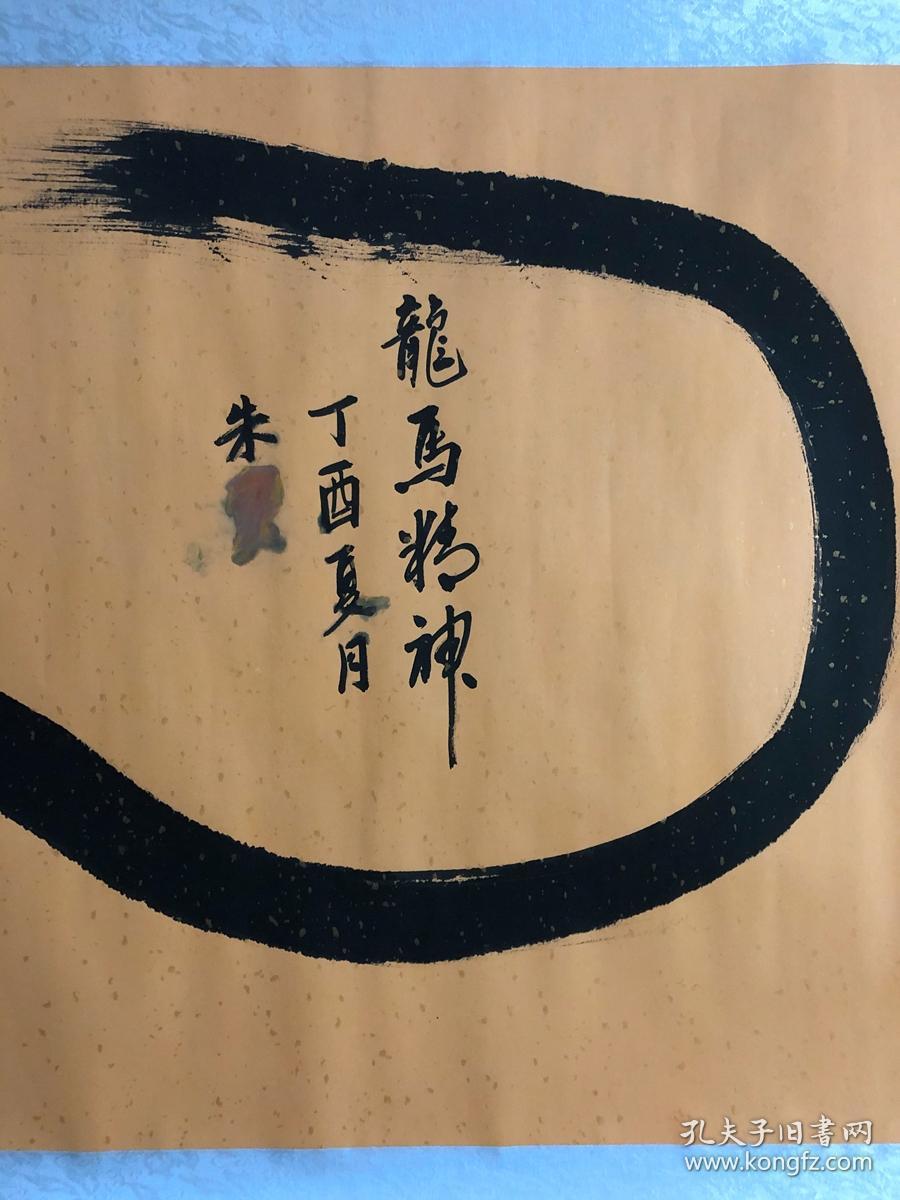 龍馬精神
丁酉夏月
朱
孔夫子旧書网
www.kongfz.com